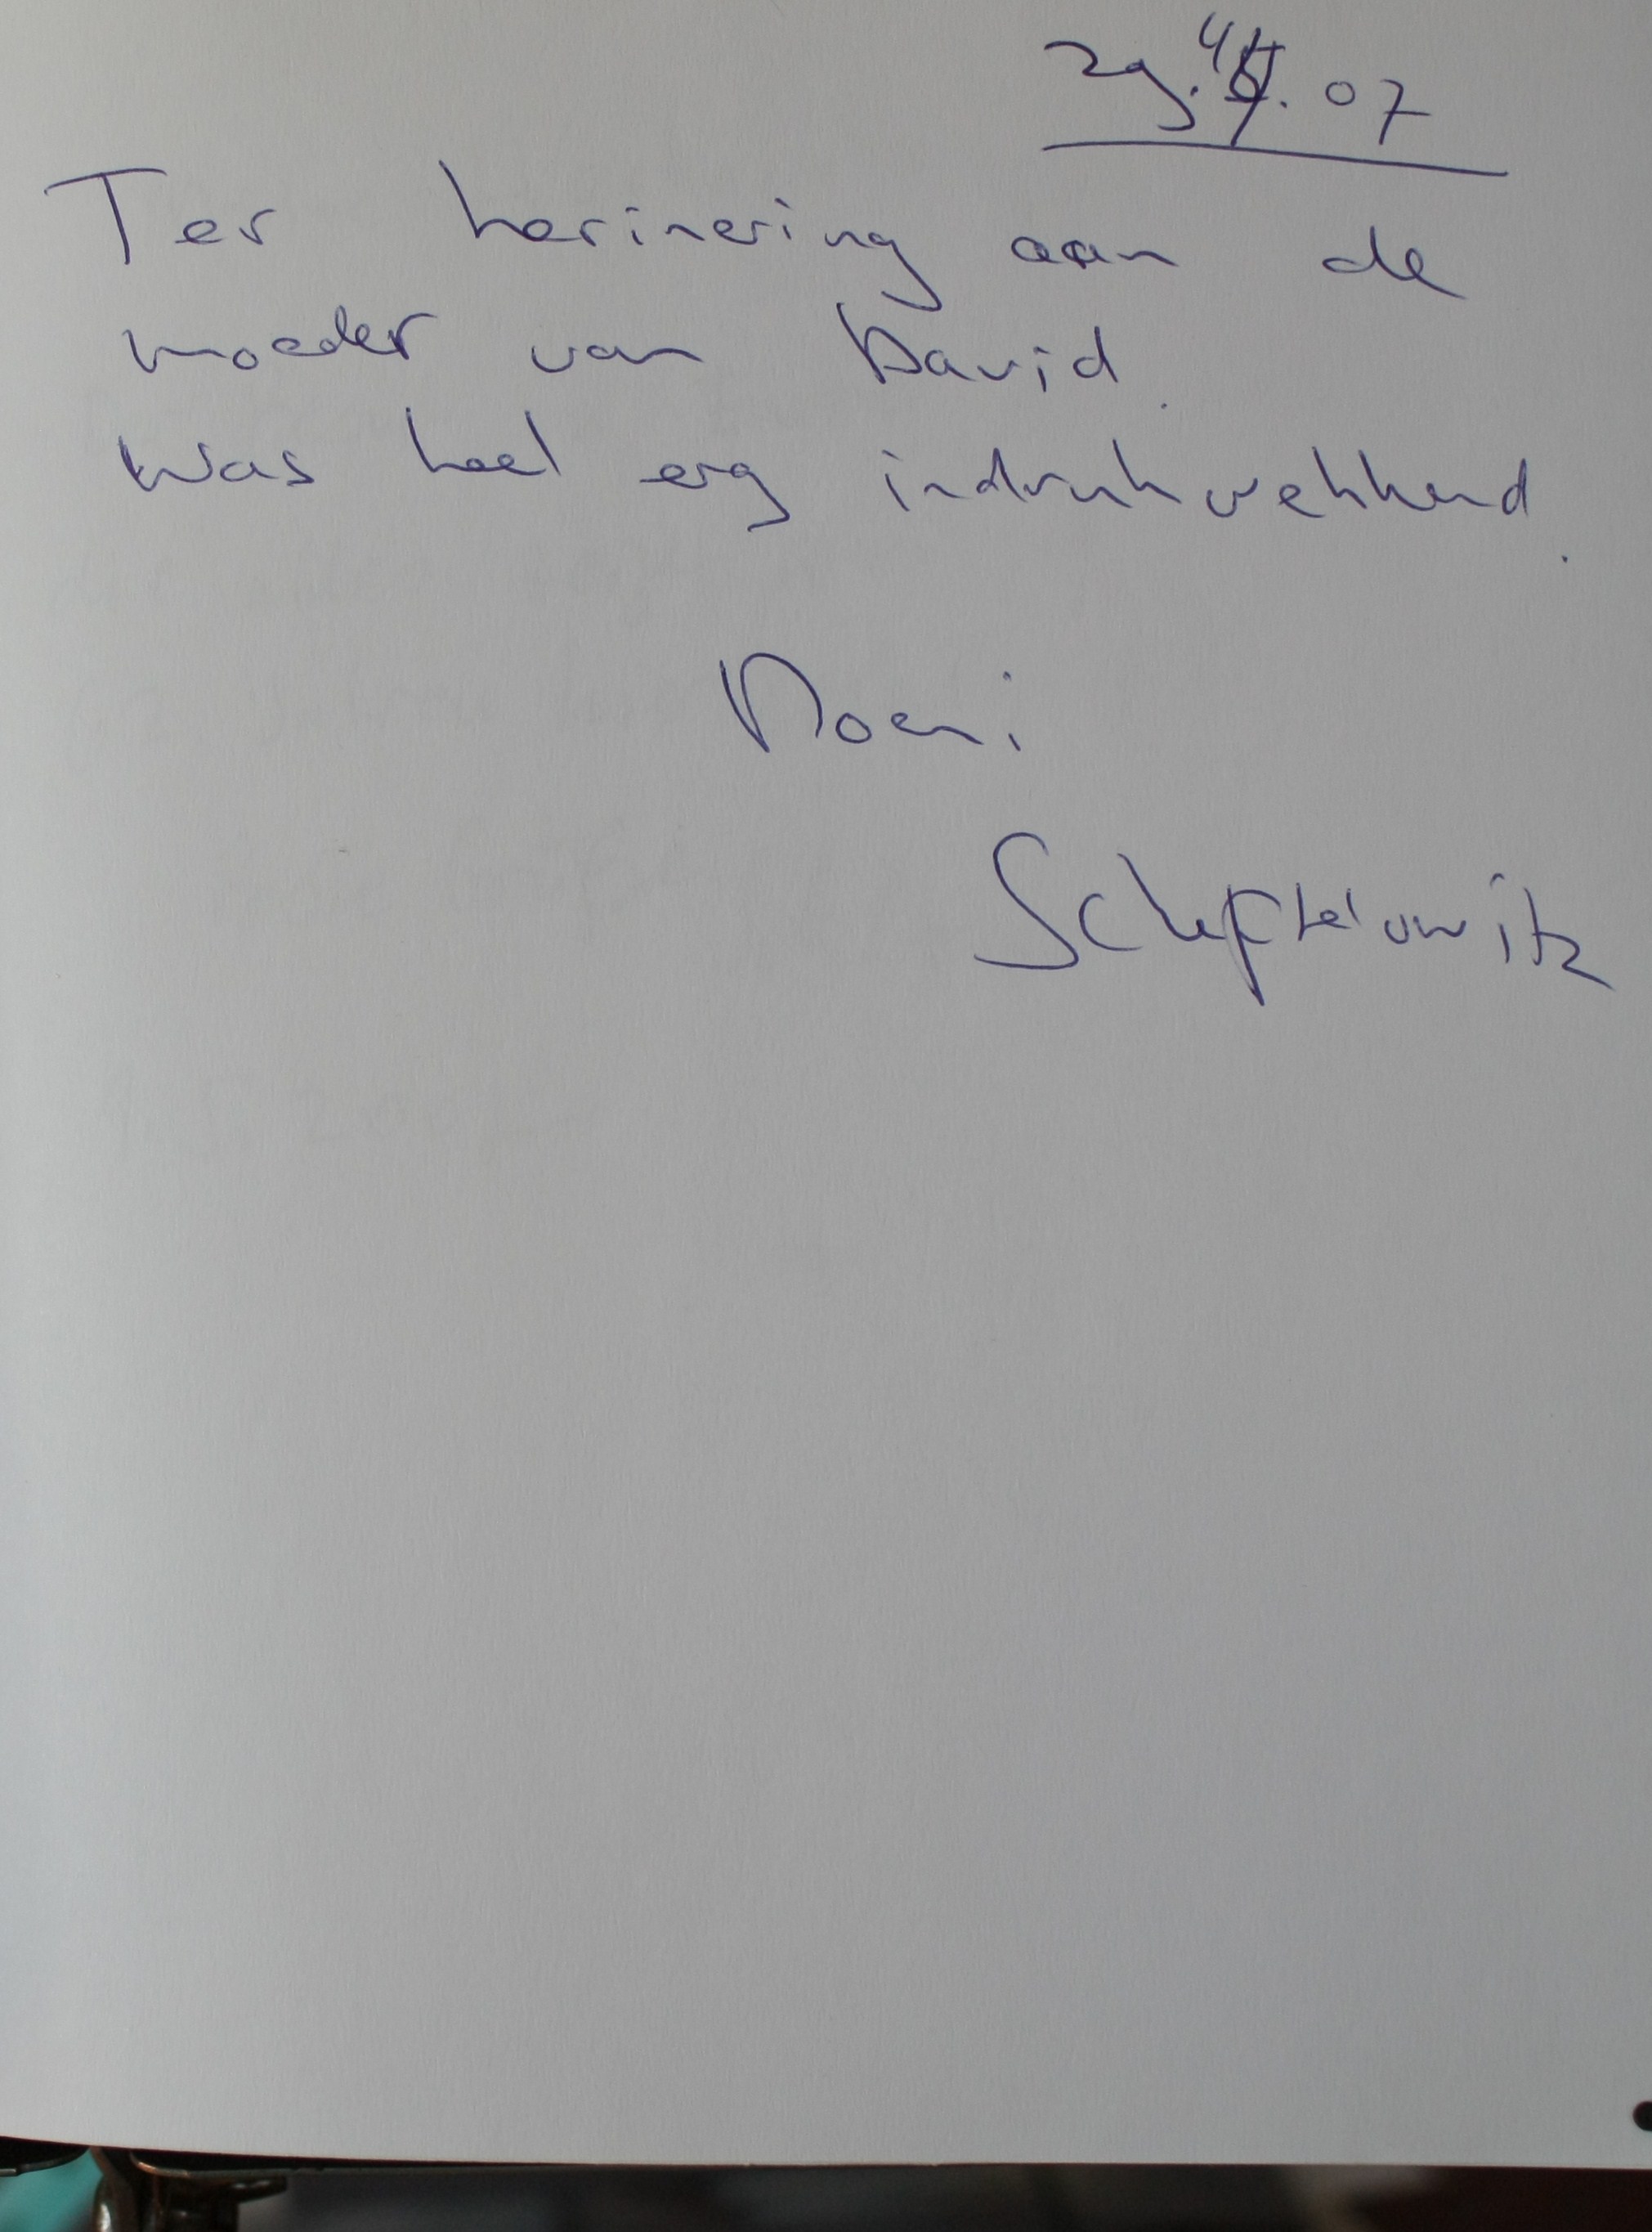 29.4.07
Ter herinering aan de
moeder van David.
Was heel erg indrukwekkend.
Noemi
Scheftelowitz